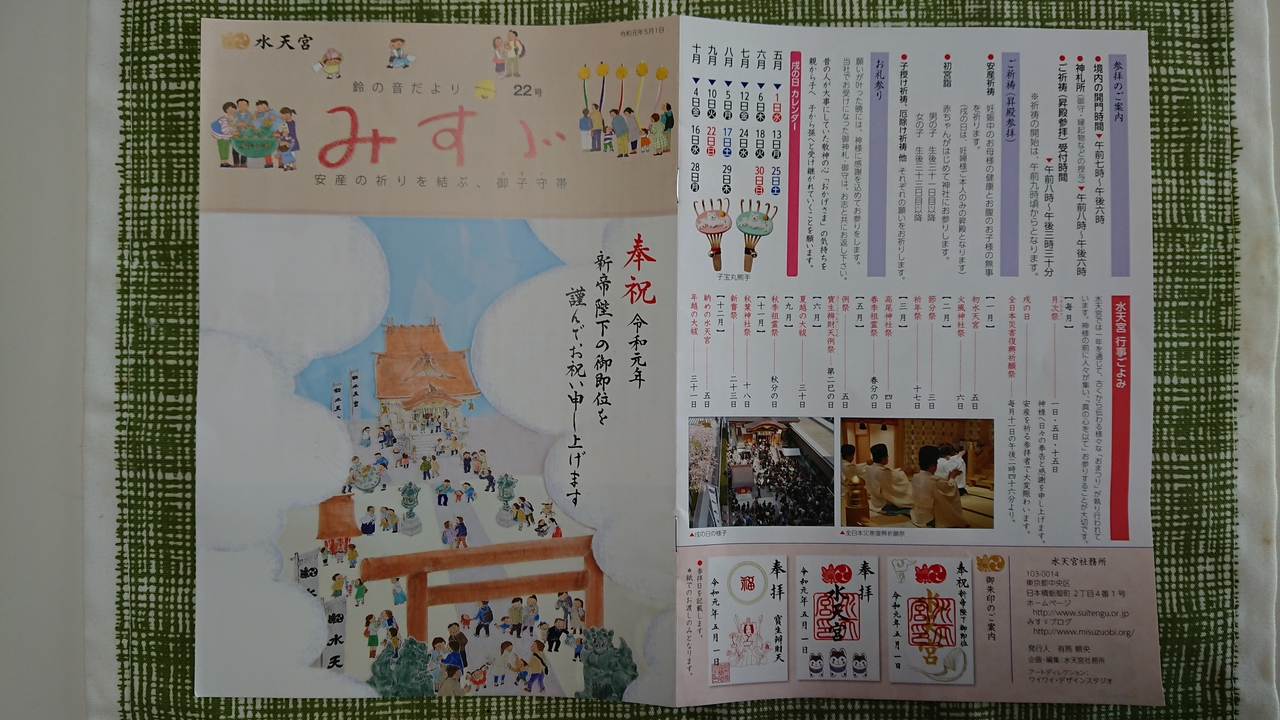 水天宮
令和元年5月1日
鈴の音だより
22号
みすゞ
安産の祈りを結ぶ、御子守帯
奉祝 令和元年
新帝陛下の御即位を
謹んでお祝い申し上げます
水天宮
参拝のご案内
●境内の開門時間▼午前七時〜午後六時
●神札所(御守・縁起物などの授与)▼午前八時〜午後六時
●ご祈祷(昇殿参拝)受付時間
▼午前八時〜午後三時三十分
※祈祷の開始は、午前九時頃からとなります。
ご祈祷(昇殿参拝)
●安産祈祷 妊娠中のお母様の健康とお腹のお子様の無事
を祈ります。
(戌の日は、妊婦様ご本人のみの昇殿となります)
●初宮詣 赤ちゃんがはじめて神社にお参りします。
男の子 生後三十一日目以降
女の子 生後三十三日目以降
●子授け祈祷、厄除け祈祷 他 それぞれの願いをお祈りします。
お礼参り
願いが叶った暁には、神様に感謝を込めてお参りをします。
当社でお受けになった御神札・御守は、お志と共にお返し下さい。
昔の人が大事にしていた敬神の心、「おかげさま」の気持ちを
親から子へ、子から孫へと受け継がれていくことを願います。
戌の日カレンダー
五月▼1日㊌ 13日㊊ 25日㊏
六月▼6日㊍ 18日㊋ 30日㊐
七月▼12日㊎ 24日㊌
八月▼5日㊊ 17日㊏ 29日㊍
九月▼10日㊋ 22日㊐
十月▼4日㊎ 16日㊌ 28日㊊
子宝丸熊手
水天宮 行事ごよみ
水天宮では一年を通じて、古くから伝わる様々な「おまつり」が執り行われて
います。神様の前に人々が集い、「真の心を以て」お参りすることが大切です。
【毎月】
月次祭 一日・五日・十五日
神様へ日々の奉告と感謝を申し上げます。
戌の日 安産を祈る参拝者で大変賑わいます。
全日本災害復興祈願祭 毎月十一日の午後二時四十六分より。
【一月】
初水天宮 五日
火風神社祭 六日
【二月】
節分祭 三日
祈年祭 十七日
【三月】
高尾神社祭 四日
春季祖霊祭 春分の日
【五月】
例祭 五日
寶生辨財天例祭 第二巳の日
【六月】
夏越の大祓 三十日
【九月】
秋季祖霊祭 秋分の日
【十一月】
秋葉神社祭 十八日
新嘗祭 二十三日
【十二月】
納めの水天宮 五日
年越の大祓 三十一日
▲戌の日の様子
▲全日本災害復興祈願祭
水天宮社務所
103-0014
東京都中央区
日本橋蛎殻町 2丁目4番1号
ホームページ
http://www.suitengu.or.jp
みすゞブログ
http://www.misuzuobi.org/
発行人 有馬 頼央
企画・編集:水天宮社務所
アートディレクション:
ワイワイ・デザインスタジオ
御朱印のご案内
奉祝 新帝陛下御即位
水天宮
令和元年五月一日
奉拝
水天宮
令和元年五月一日
奉拝
福
寶生辨財天
令和元年五月一日
●参拝日を記載します。
*紙でのお渡しのみとなります。